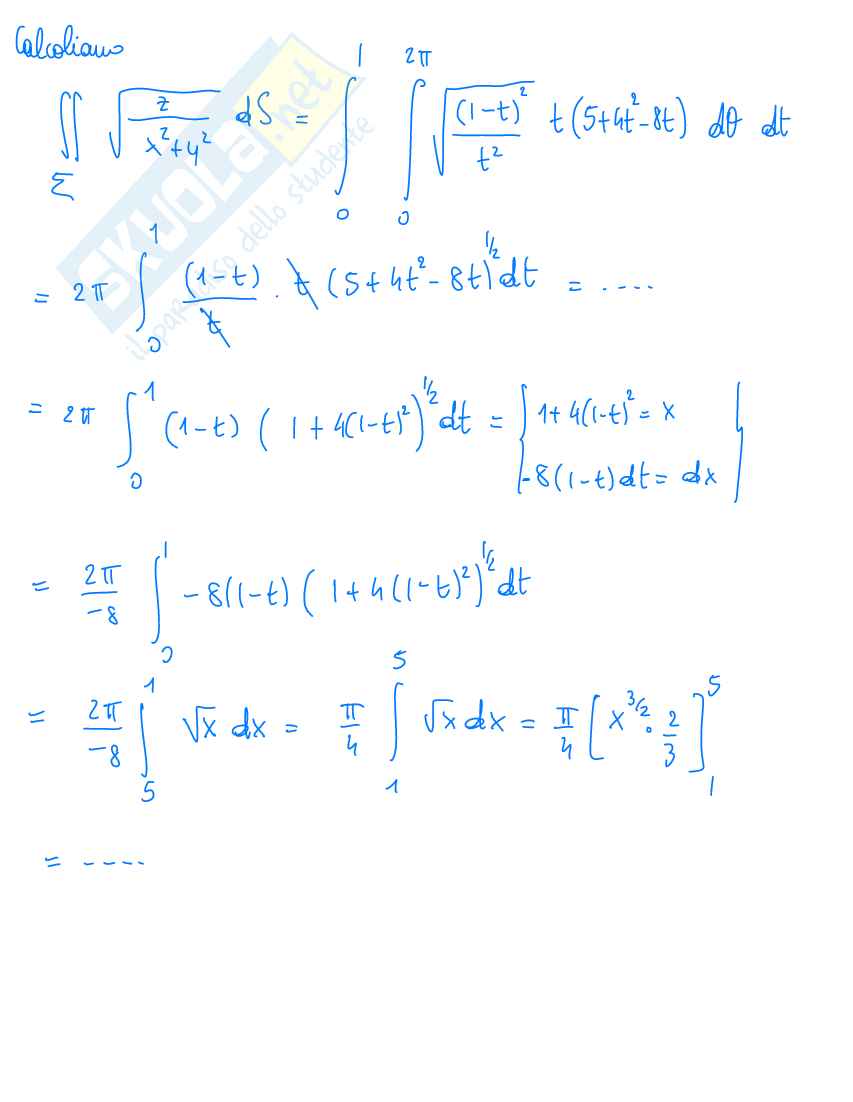 Calcoliamo
∬_Σ √(z/(x²+y²)) dS = ∫₀¹ ∫₀^{2π} √((1-t)²/t²) t(5+4t²-8t) dθ dt
= 2π ∫₀¹ (1-t)/t · t (5+4t²-8t)^{1/2} dt = ....
= 2π ∫₀¹ (1-t) (1+4(1-t)²)^{1/2} dt = { 1+4(1-t)² = x
-8(1-t)dt = dx }
= 2π/-8 ∫₀¹ -8(1-t) (1+4(1-t)²)^{1/2} dt
= 2π/-8 ∫₅¹ √x dx = π/4 ∫₁⁵ √x dx = π/4 [x^{3/2} · 2/3]₁⁵
= ----
SKUOLA.net
il paradiso dello studente